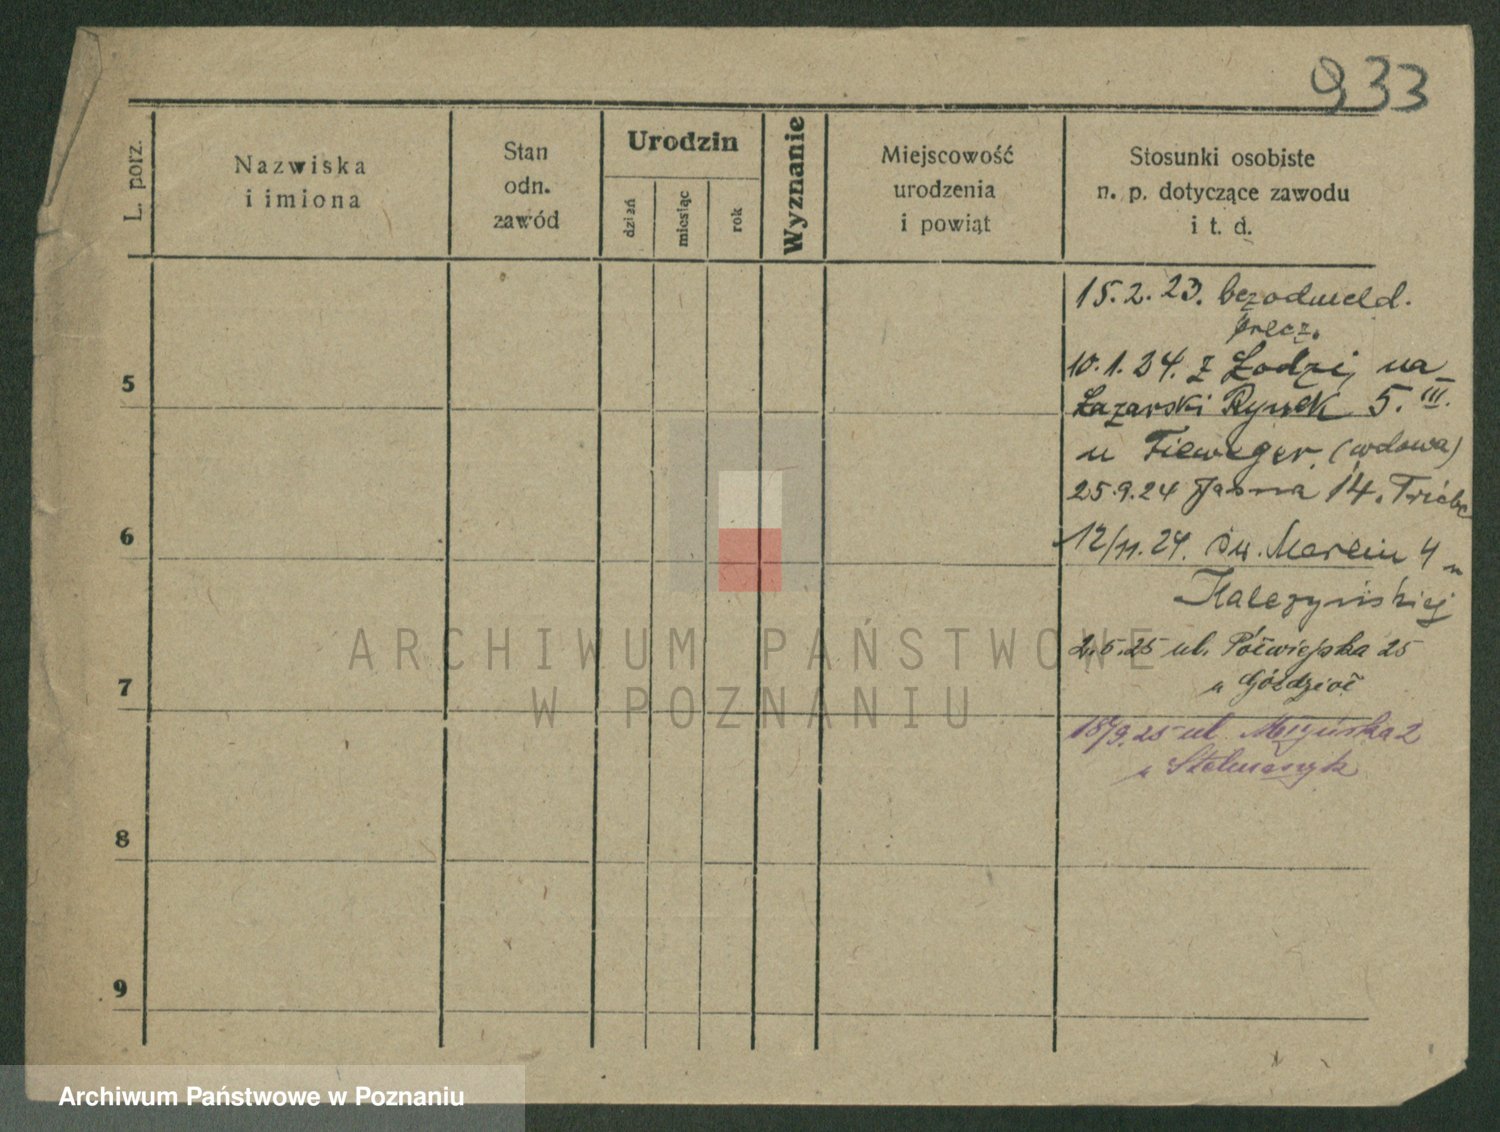 933
L. porz.
Nazwiska
i imiona
Stan
odn.
zawód
Urodzin
dzień
miesiąc
rok
Wyznanie
Miejscowość
urodzenia
i powiąt
Stosunki osobiste
n. p. dotyczące zawodu
i t. d.
15.2.23. bezodmeld.
precz.
10.1.24. z Łodzi, na
Łazarski Rynek 5. III.
u Fieweger. (wdowa)
25.9.24 Jasna 14.
12/11.24. św. Marcin 4 u
2.5.25 ul. Półwiejska 25
u Góździoł
18/9.25 ul 2
u
5
6
7
8
9
ARCHIWUM PAŃSTWOWE
W POZNANIU
Archiwum Państwowe w Poznaniu